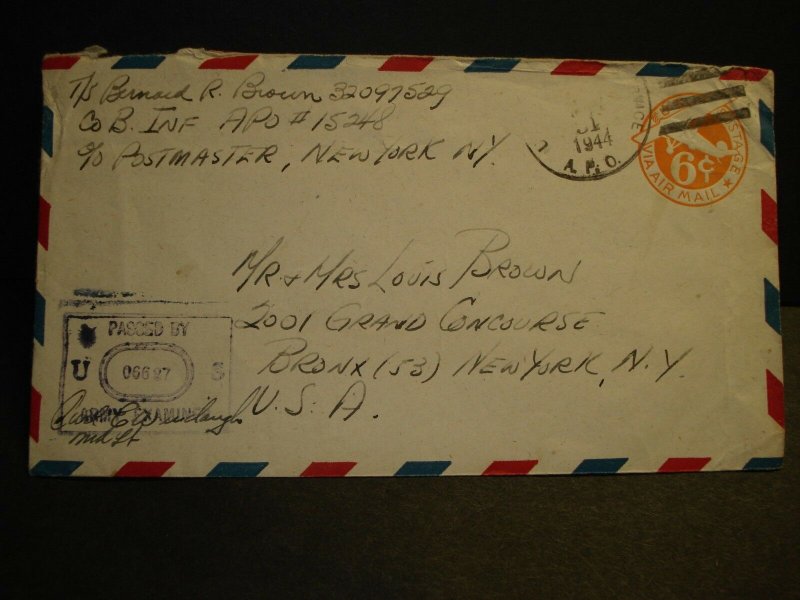 T/5 Bernard R. Brown 32097529
Co B. INF APO # 15248
c/o POSTMASTER, NEW YORK NY.
31
1944
A.P.O.
POSTAGE
6¢
VIA AIR MAIL
MR & MRS LOUIS BROWN
2001 GRAND CONCOURSE
BRONX (53) NEW YORK, N.Y.
U.S.A.
PASSED BY
U 06627 S
ARMY EXAMINER